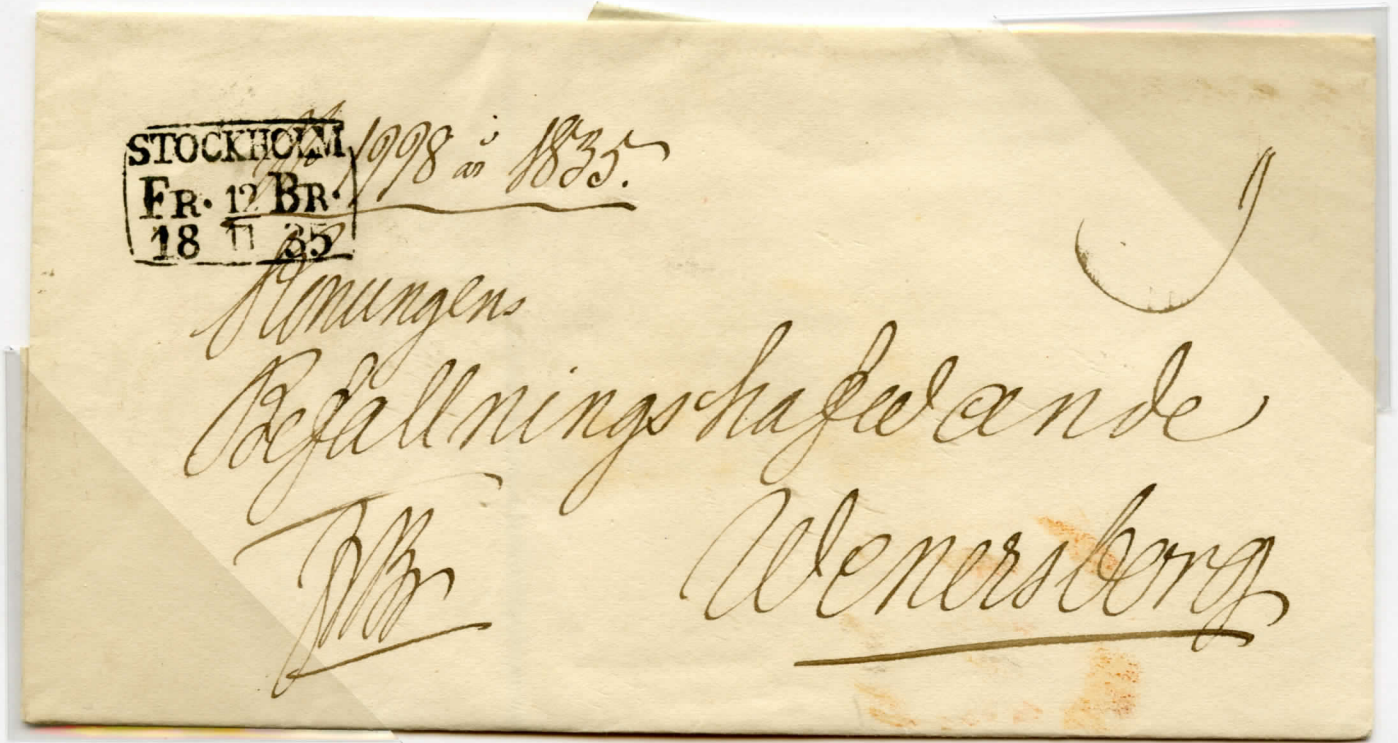 STOCKHOLM
FR. 12 BR.
18 11 35
1998 år 1835.
Konungens
Befallningshafwande
FrBr
Wenersborg